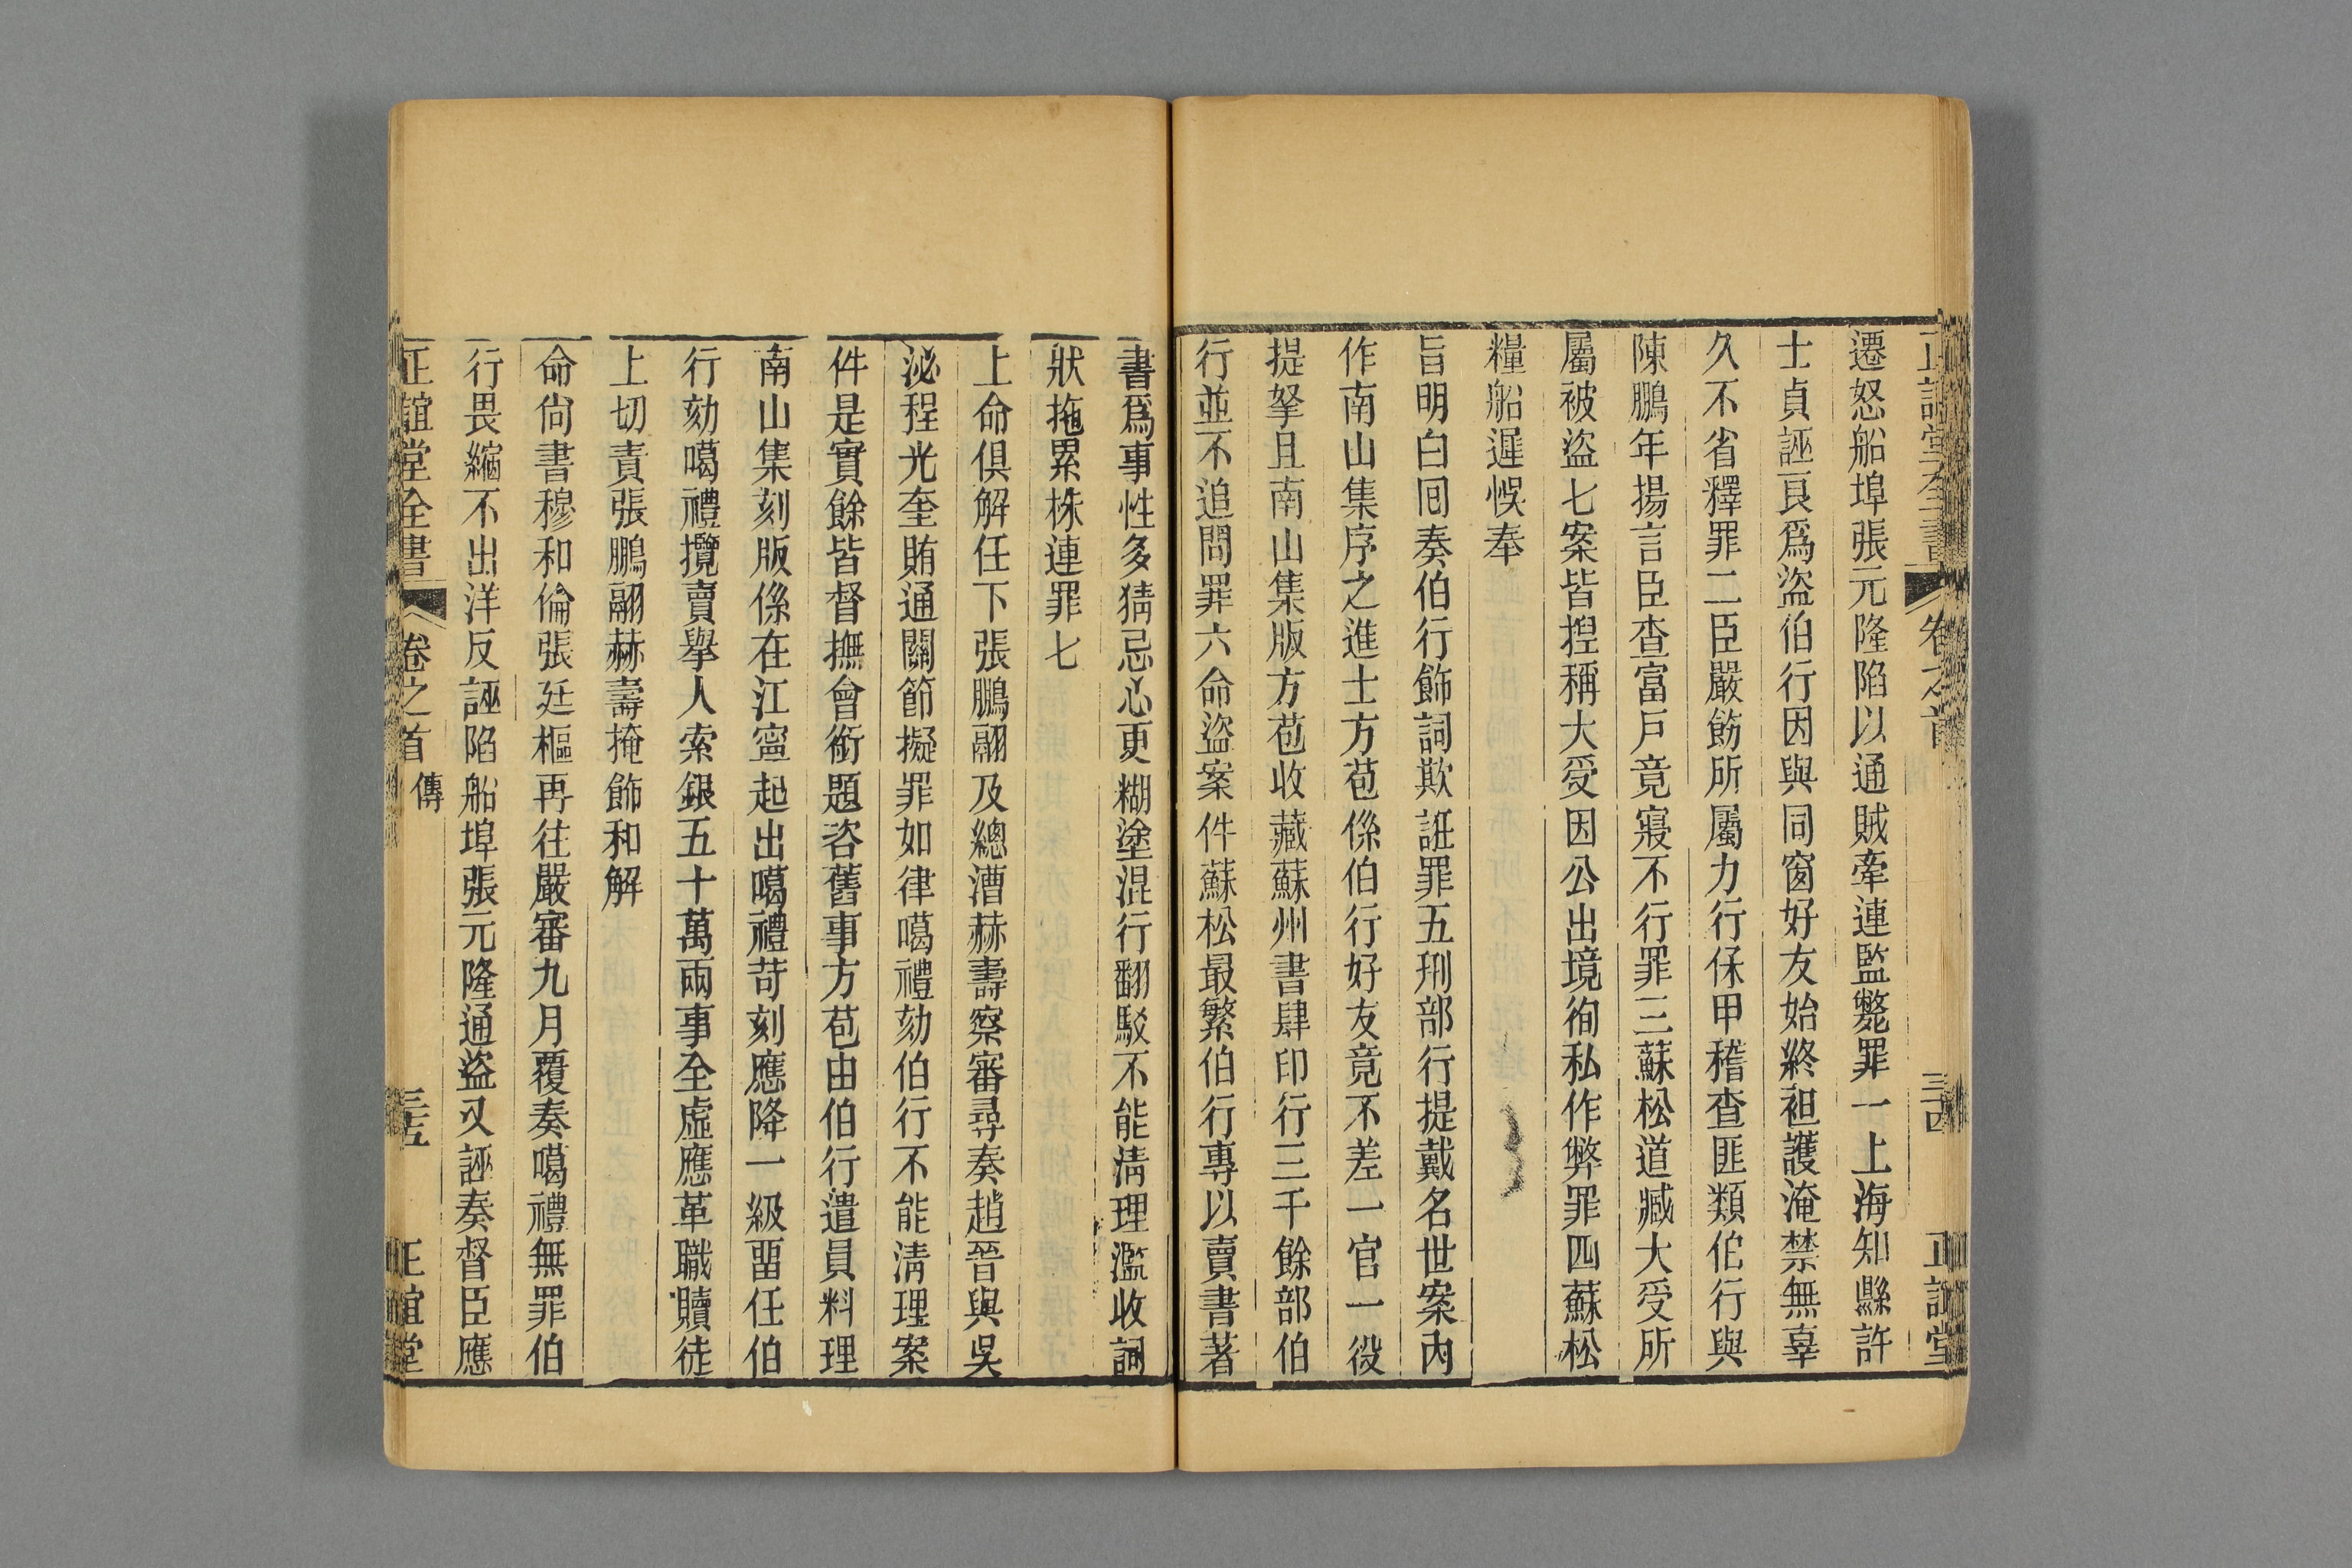 正誼堂全書 卷之首 三四 正誼堂
遷怒船埠張元隆陷以通賊牽連監斃罪一上海知縣許
士貞誣良爲盜伯行因與同窗好友始終袒護淹禁無辜
久不省釋罪二臣嚴飭所屬力行保甲稽查匪類伯行與
陳鵬年揚言臣查富戶竟寢不行罪三蘇松道臧大受所
屬被盜七案皆揑稱大受因公出境徇私作弊罪四蘇松
糧船遲悞奉
旨明白囘奏伯行飾詞欺誑罪五刑部行提戴名世案內
作南山集序之進士方苞係伯行好友竟不差一官一役
提拏且南山集版方苞收藏蘇州書肆印行三千餘部伯
行並不追問罪六命盜案件蘇松最繁伯行專以賣書著
書爲事性多猜忌心更糊塗混行翻駁不能淸理濫收詞
狀拖累株連罪七
上命俱解任下張鵬翮及總漕赫壽察審尋奏趙晉與吳
泌程光奎賄通關節擬罪如律噶禮劾伯行不能淸理案
件是實餘皆督撫會銜題咨舊事方苞由伯行遣員料理
南山集刻版係在江寧起出噶禮苛刻應降一級畱任伯
行劾噶禮攬賣舉人索銀五十萬兩事全虛應革職贖徒
上切責張鵬翮赫壽掩飾和解
命尙書穆和倫張廷樞再往嚴審九月覆奏噶禮無罪伯
行畏縮不出洋反誣陷船埠張元隆通盜又誣奏督臣應
正誼堂全書 卷之首 傳 三五 正誼堂